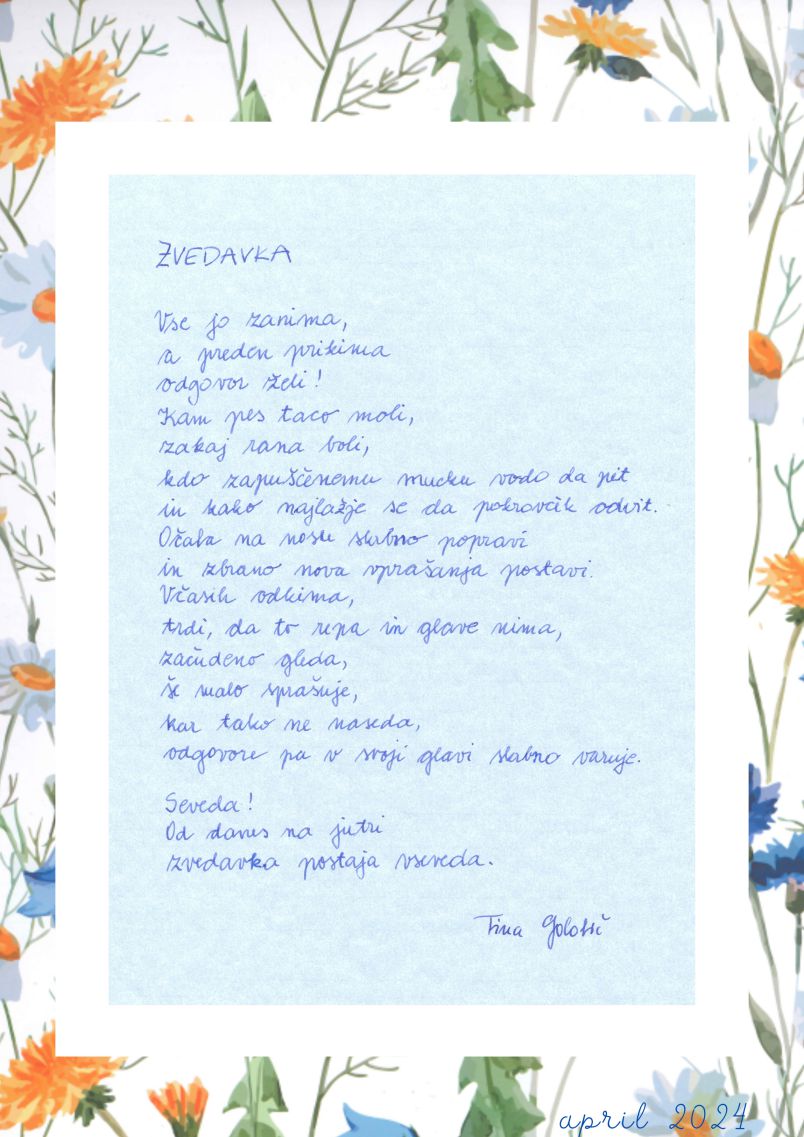 ZVEDAVKA
Vse jo zanima,
a preden prikima
odgovor želi!
Kam pes taco moli,
zakaj rana boli,
kdo zapuščenemu mucku vodo da pit
in kako najlažje se da pokrovčik odvit.
Očala na nosu skrbno popravi
in zbrano nova vprašanja postavi.
Včasih odkima,
trdi, da to repa in glave nima,
začudeno gleda,
še malo sprašuje,
kar tako ne naseda,
odgovore pa v svoji glavi skrbno varuje.
Seveda!
Od danes na jutri
zvedavka postaja vseveda.
Tina
april 2024